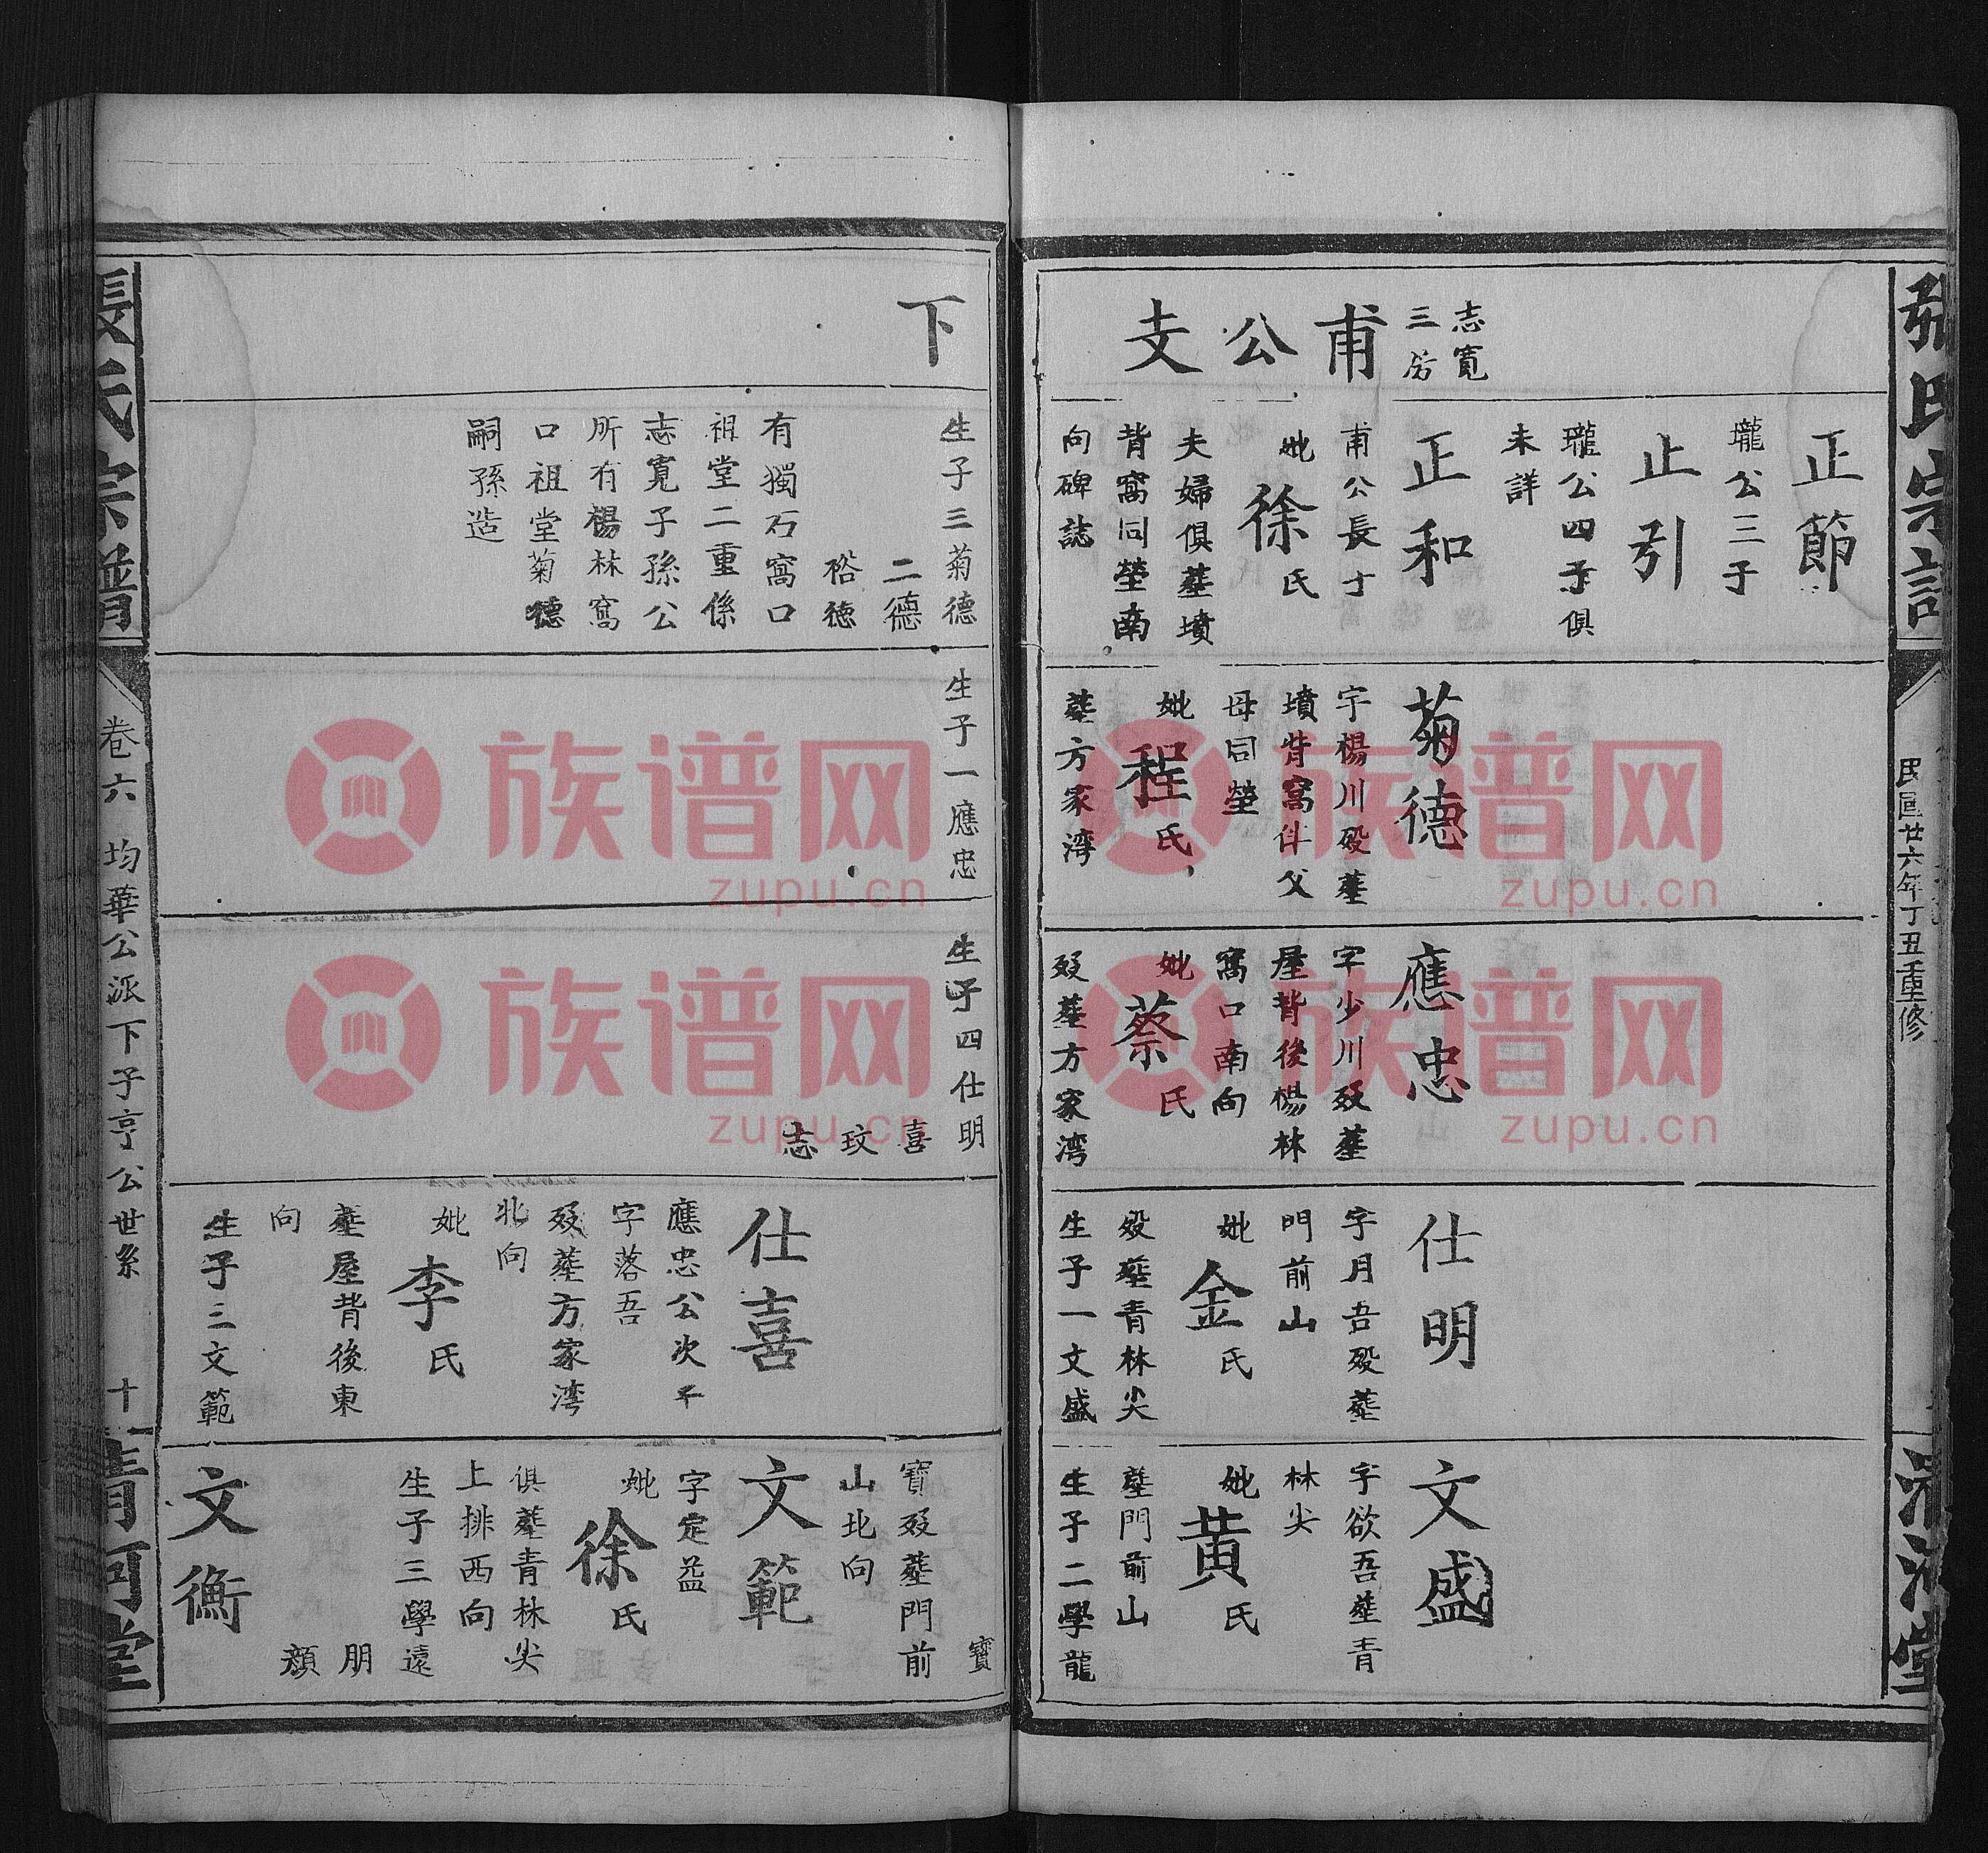 張氏宗譜
民國廿六年丁丑重修
清河堂
志寬
三房
甫公支
正節
瓏公三子
正引
瓏公四子俱
未詳
正和
甫公長子
妣徐氏
夫婦俱塟墳
背窩同塋南
向碑誌
菊德
字楊川殁塟
墳背窩伴父
母同塋
妣程氏
塟方家湾
應忠
字少川殁塟
屋背後楊林
窩口南向
妣蔡氏
殁塟方家湾
仕明
字月吾殁塟
門前山
妣金氏
殁塟青林尖
生子一文盛
文盛
字欲吾塟青
林尖
妣黃氏
塟門前山
生子二學龍
下
生子三菊德
二德
裕德
有獨石窩口
祖堂二重係
志寬子孫公
所有楊林窩
口祖堂菊德
嗣孫造
生子一應忠
生子四仕明
喜
玟
志
仕喜
應忠公次子
字落吾
殁塟方家湾
北向
妣李氏
塟屋背後東
向
生子三文範
寶
寶殁塟門前
山北向
文範
字定益
妣徐氏
俱塟青林尖
上排西向
生子三學遠
朋
顏
文衡
張氏宗譜
卷六 均華公派下子亨公世系
十一
清河堂
族谱网
zupu.cn
族谱网
zupu.cn
族谱网
zupu.cn
族谱网
zupu.cn